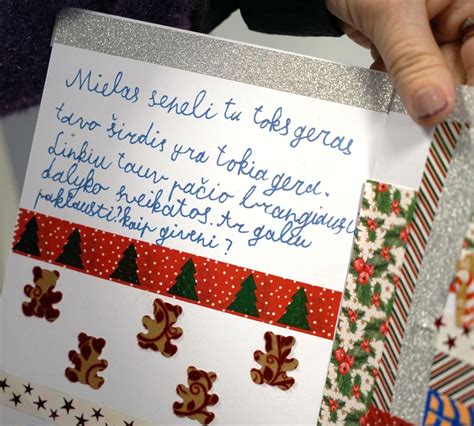 Mielas seneli tu toks geras
tavo širdis yra tokia gera.
Linkiu tau pačio brangiausio
dalyko sveikatos. Ar galiu
paklausti? kaip giveni?